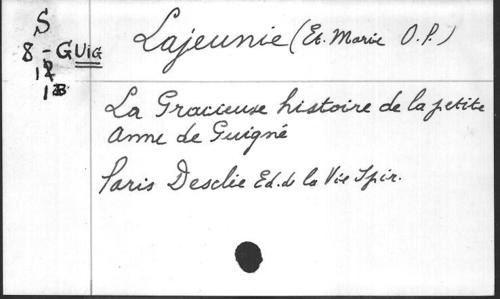 S
8-GUIG
12
13
Lajeunie (Et. Marie O.P.)
La Gracieuse histoire de la petite
Anne de Guigné
Paris Desclée Ed. de la Vie Spir.